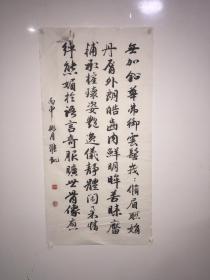 無加鉛華弗御雲髻峩〻脩眉聯娟
丹脣外朗皓齒内鮮明眸善睞靨
輔承權瓌姿艷逸儀靜體閑柔情
綽態媚於語言奇服曠世骨像應
丙申 月